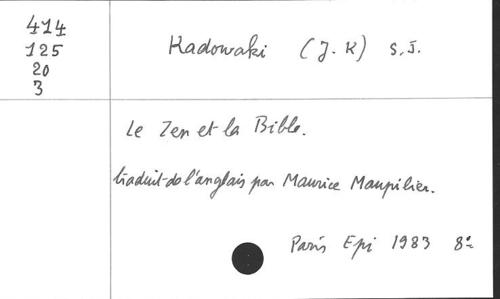 414
125
20
3
Kadowaki (J. K) S.J.
Le Zen et la Bible.
traduit de l'anglais par Maurice Maupilier.
Paris Epi 1983 8°